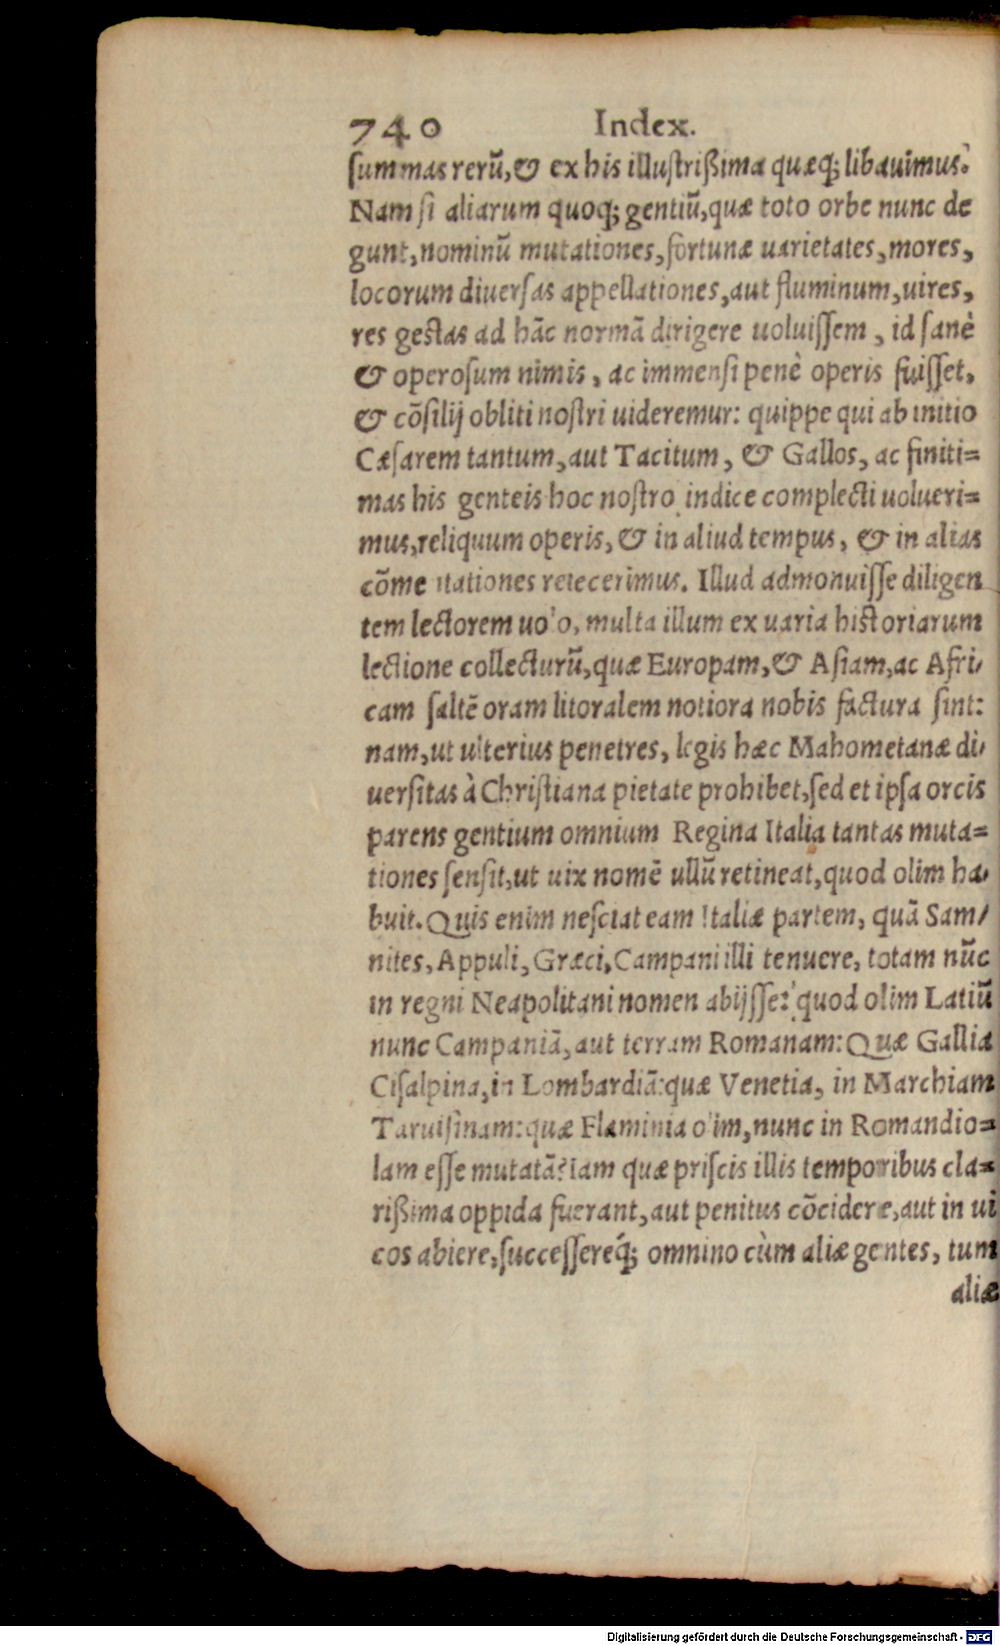 740 Index.
ſummas rerū, & ex his illuſtrißima quæq; libauimus.
Nam ſi aliarum quoq; gentiū, quæ toto orbe nunc de
gunt, nominū mutationes, fortunæ uarietates, mores,
locorum diuerſas appellationes, aut fluminum, uires,
res geſtas ad hāc normā dirigere uoluiſſem, id ſanè
& operoſum nimis, ac immenſi penè operis fuiſſet,
& cōſilij obliti noſtri uideremur: quippe qui ab initio
Cæſarem tantum, aut Tacitum, & Gallos, ac finiti=
mas his genteis hoc noſtro indice complecti uolueri=
mus, reliquum operis, & in aliud tempus, & in alias
cōme tationes reiecerimus. Illud admonuiſſe diligen
tem lectorem uolo, multa illum ex uaria hiſtoriarum
lectione collecturū, quæ Europam, & Aſiam, ac Afri/
cam ſaltē oram litoralem notiora nobis factura ſint:
nam, ut ulterius penetres, legis hæc Mahometanæ di/
uerſitas à Chriſtiana pietate prohibet, ſed et ipſa orcis
parens gentium omnium Regina Italia tantas muta=
tiones ſenſit, ut uix nomē ullū retineat, quod olim ha/
buit. Quis enim neſciat eam Italiæ partem, quā Sam/
nites, Appuli, Græci, Campani illi tenuere, totam nūc
in regni Neapolitani nomen abijſſe? quod olim Latiū
nunc Campaniā, aut terram Romanam: Quæ Gallia
Ciſalpina, in Lombardiā: quæ Venetia, in Marchiam
Taruiſinam: quæ Flaminia olim, nunc in Romandio=
lam eſſe mutatā? Iam quæ priſcis illis temporibus cla=
rißima oppida fuerant, aut penitus cōcidere, aut in ui
cos abiere, ſucceſſereq́; omnino cùm aliæ gentes, tum
aliæ
Digitalisierung gefördert durch die Deutsche Forschungsgemeinschaft - DFG